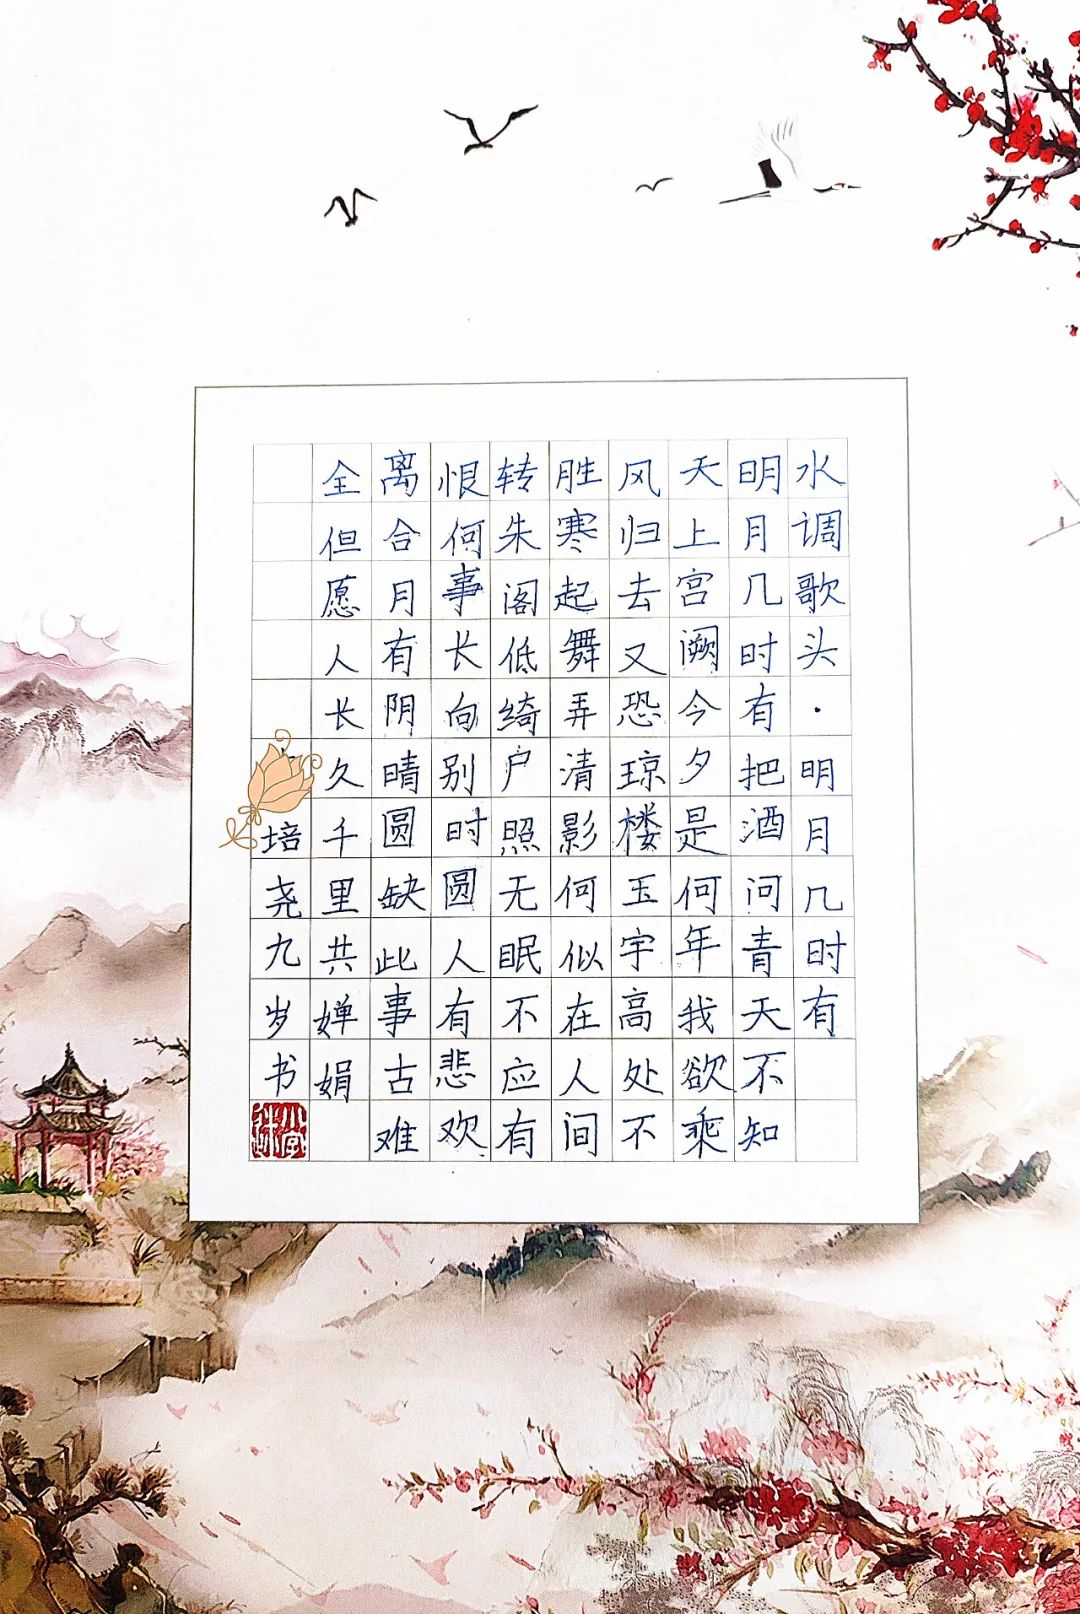 水调歌头·明月几时有
明月几时有把酒问青天不知
天上宫阙今夕是何年我欲乘
风归去又恐琼楼玉宇高处不
胜寒起舞弄清影何似在人间
转朱阁低绮户照无眠不应有
恨何事长向别时圆人有悲欢
离合月有阴晴圆缺此事古难
全但愿人长久千里共婵娟
培尧九岁书